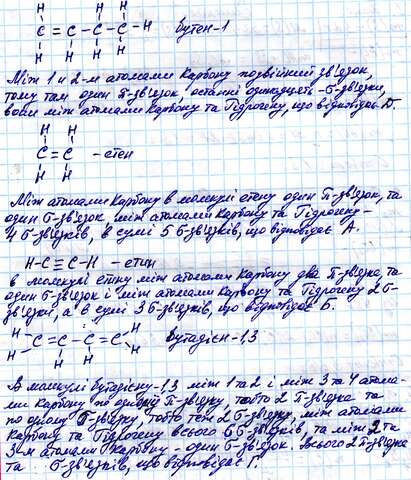 H H H
C = C - C - C - H бутен-1
H H H H
Між 1 и 2-м атомами Карбону подвійний зв'язок,
тому там один π-зв'язок останні одинадцять - б-зв'язки,
вони між атомами Карбону та Гідрогену, що відповідає Д
H H
C = C - етен
H H
Між атомами Карбону в молекулі етену один π-зв'язок, та
один б-зв'язок між атомами Карбону та Гідрогену -
4 б-зв'язків, в сумі 5 б-зв'язків, що відповідає А.
H-C≡C-H - етин
в молекулі етину між атомами Карбону два π-зв'язка, та
один б-зв'язок і між атомами Карбону та Гідрогену 2 б-
зв'язки, а в сумі 3 б-зв'язків, що відповідає Б.
H H H
C = C - C = C бутадієн-1,3
H H H
В молекулі бутадієну-1,3 між 1 та 2 і між 3 та 4 атома-
ми Карбону по одному π-зв'язку, тобто 2 π-зв'язка та
по одному б-зв'язку, тобто теж 2 б-зв'язку, між атомами
Карбону та Гідрогену всього 6 б-зв'язків, та між 2 та
3-м атомами Карбону - один б-зв'язок. Всього 2 π-зв'язка
та б-зв'язків, що відповідає Г.